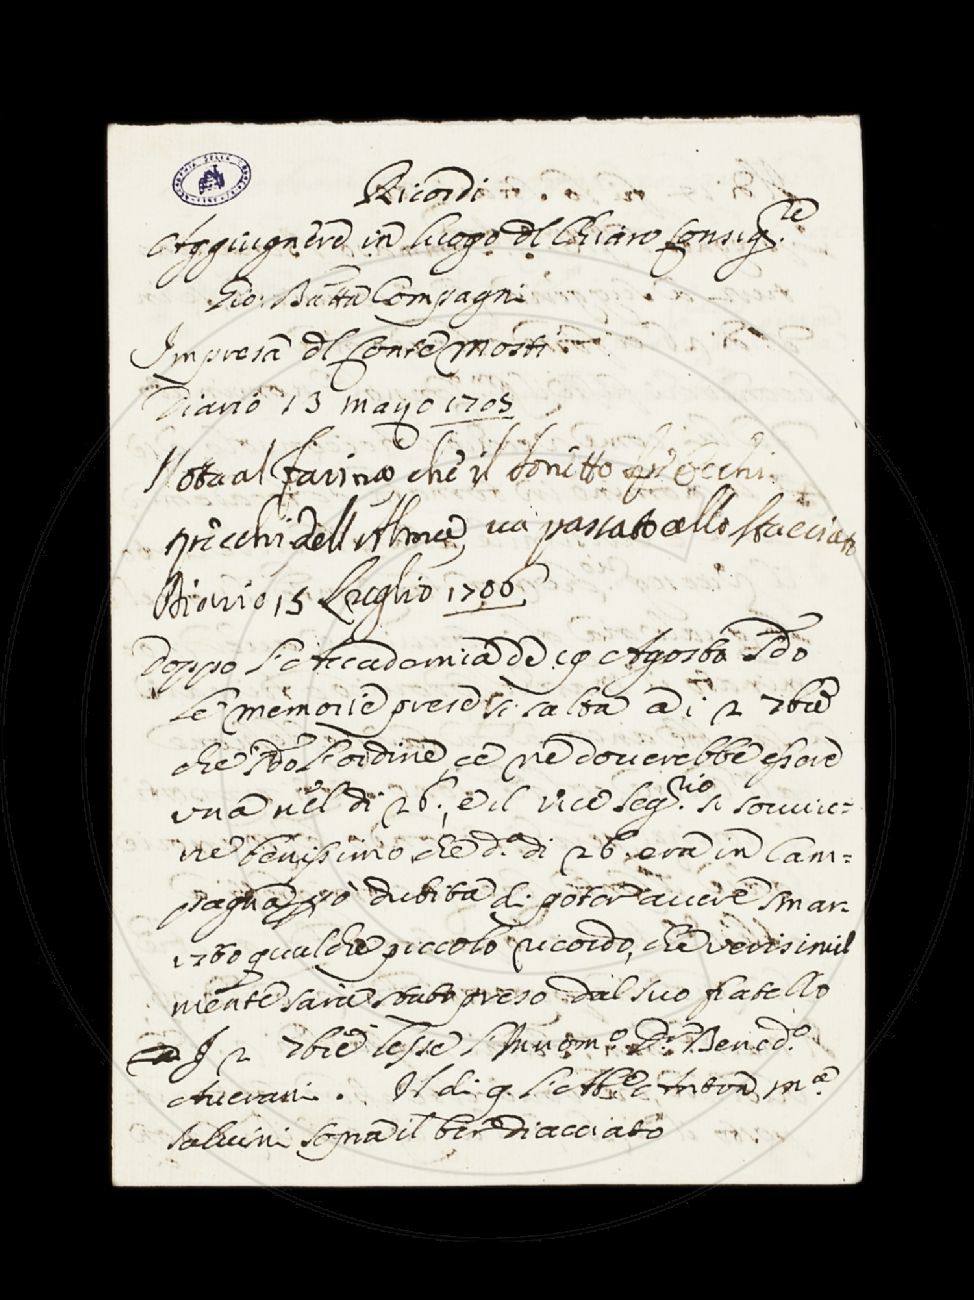 Ricordi
Aggiugnere in luogo del Chiaro Consig.re
Gio: Batta Compagni
Impresa del Conte Mosti
Diario 13 mayo 1705
Nota al Farina che il sonetto
dell' Abate, va passato allo Stacciato
Diario 15 Luglio 1706
Doppo l'Accademia de 19 Agosto Sdo
le memorie prese si salta a i 2 7bre
che Sdo l'ordine, ce ne doverebbe essere
una nel di 26; e il vice Seg.rio si sovvie=
ne benissimo che d.o di 26. era in Cam=
pagna, però dubita di poter avere smar-
rito qualche piccolo ricordo, che verisimil
mente sarà stato preso dal suo fratello
I 2 7bre lesse l'Innom.o D.r Bened.o
Averani. Il di 9. l'Abe Anton M.a
Salvini sopra il ber diacciato